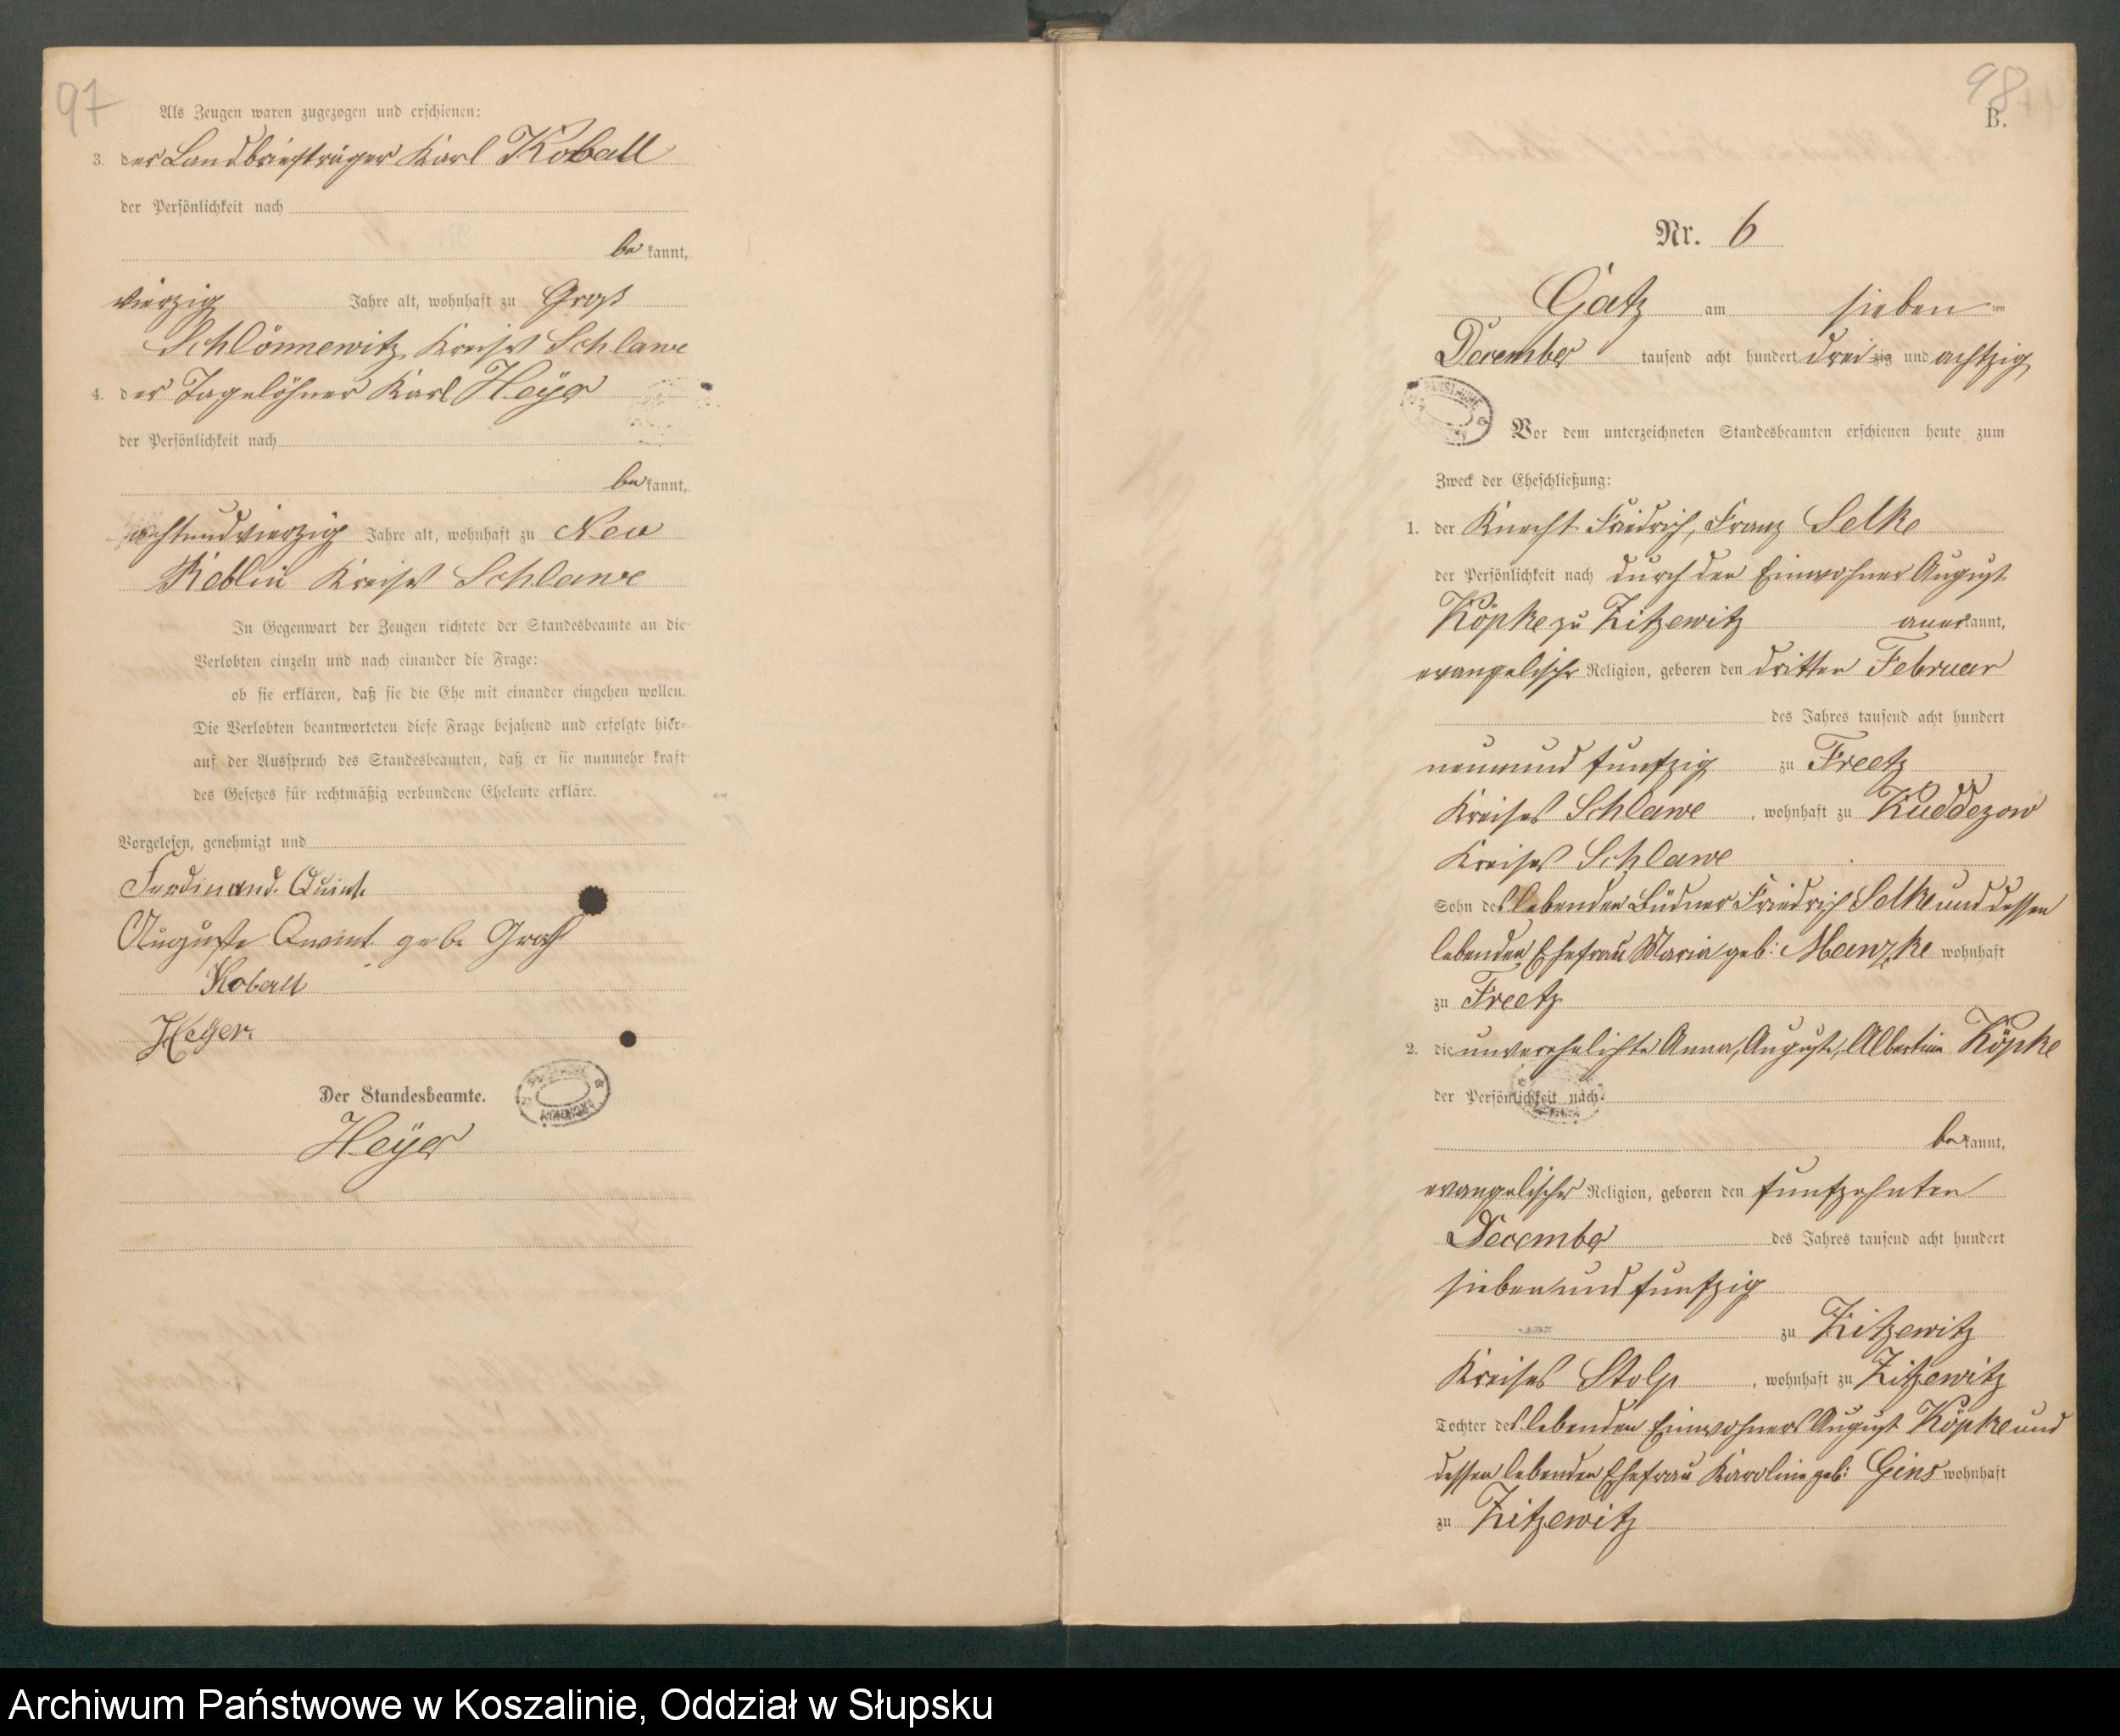 97
Als Zeugen waren zugezogen und erschienen:
3. der Landbriefträger Karl Koball
der Persönlichkeit nach
be kannt,
vierzig Jahre alt, wohnhaft zu Groß
Schlönnewitz, Kreises Schlawe
4. der Tagelöhner Karl Heyer
der Persönlichkeit nach
be kannt,
achtundvierzig Jahre alt, wohnhaft zu Neu
Reblin Kreises Schlawe
In Gegenwart der Zeugen richtete der Standesbeamte an die
Verlobten einzeln und nach einander die Frage:
ob sie erklären, daß sie die Ehe mit einander eingehen wollen.
Die Verlobten beantworteten diese Frage bejahend und erfolgte hier-
auf der Ausspruch des Standesbeamten, daß er sie nunmehr kraft
des Gesetzes für rechtmäßig verbundene Eheleute erkläre.
Vorgelesen, genehmigt und
Ferdinand. Quint.
Auguste Quint geb. Groth
Koball
Heyer.
Der Standesbeamte.
Heyer
98
B.
Nr. 6
Gatz am sieben ten
December tausend acht hundert drei zig und achtzig
Vor dem unterzeichneten Standesbeamten erschienen heute zum
Zweck der Eheschließung:
1. der Knecht Friedrich, Franz Selke
der Persönlichkeit nach durch den Einwohner August
Köpke zu Zitzewitz anerkannt,
evangelischer Religion, geboren den dritten Februar
des Jahres tausend acht hundert
neunundfunfzig zu Freetz
Kreises Schlawe, wohnhaft zu Kuddezow
Kreises Schlawe
Sohn des lebenden Büdner Friedrich Selke und dessen
lebenden Ehefrau Maria geb: Manzke wohnhaft
zu Freetz
2. die unverehelichte Anna, Auguste, Albertine Köpke
der Persönlichkeit nach
be kannt,
evangelischer Religion, geboren den funfzehnten
December des Jahres tausend acht hundert
siebenundfunfzig
zu Zitzewitz
Kreises Stolp, wohnhaft zu Zitzewitz
Tochter des lebenden Einwohners August Köpke und
dessen lebenden Ehefrau Karoline geb: Gens wohnhaft
zu Zitzewitz
Archiwum Państwowe w Koszalinie, Oddział w Słupsku